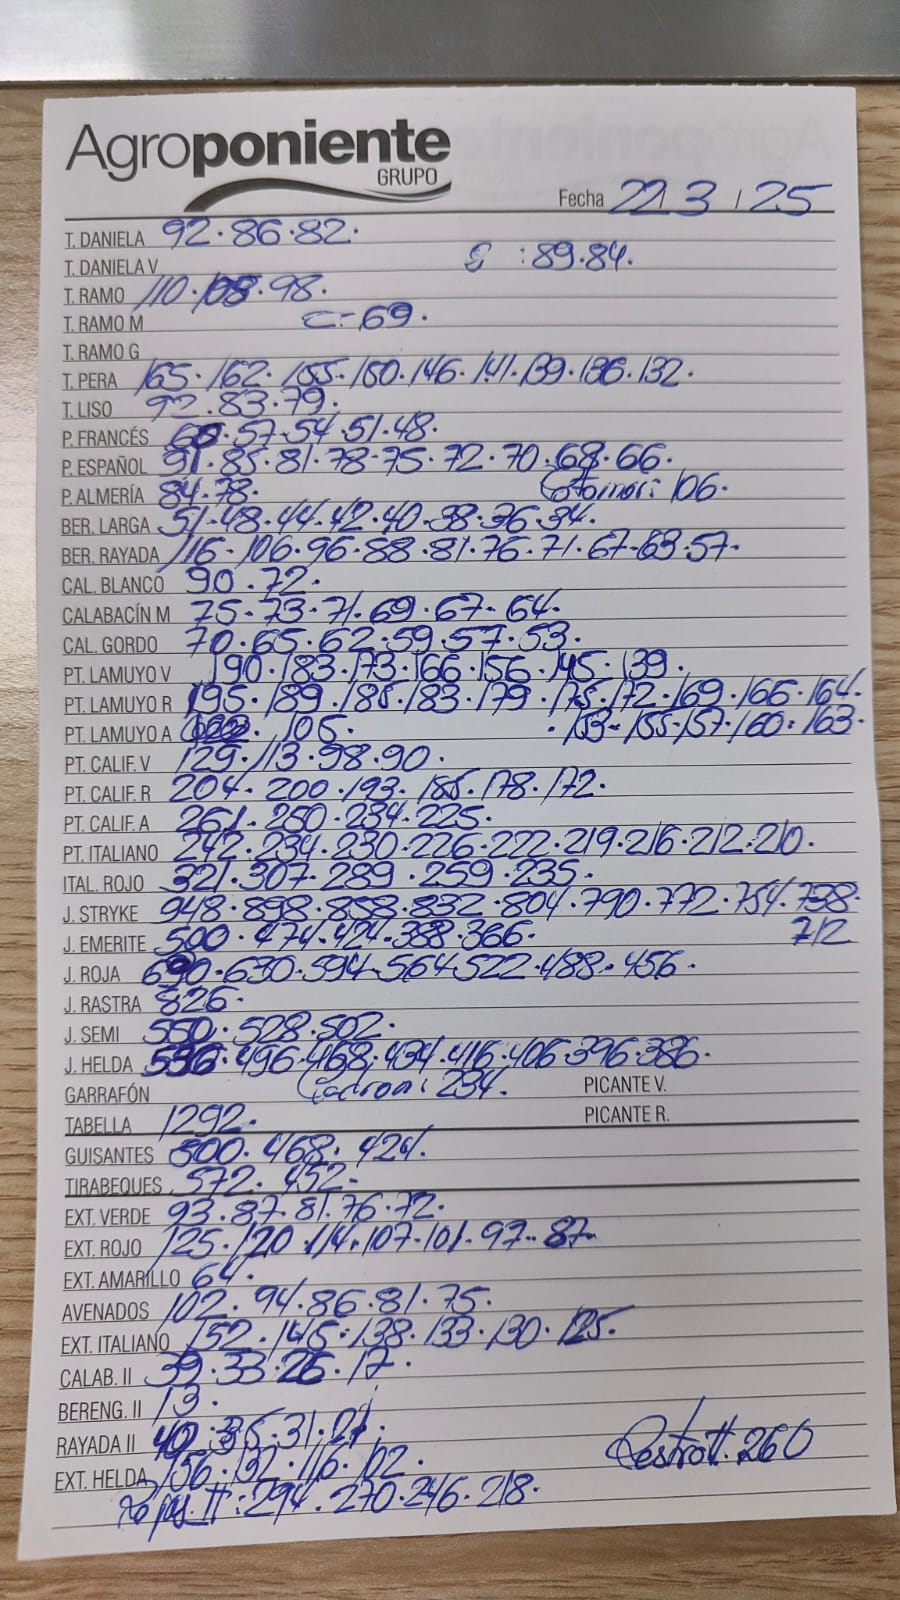 Agroponiente
GRUPO
Fecha 22/3/25
T. DANIELA 92.86.82.
T. DANELA V G :89.84.
T. RAMO 110.108.98.
T. RAMO M C-69.
T. RAMO G
T. PERA 165.162.155.150.146.141.139.136.132.
T. LISO 92.83.79.
P. FRANCÉS 60.57.54.51.48.
P. ESPAÑOL 91.85.81.78.75.72.70.68.66.
P. ALMERÍA 84.78. 106.
BER. LARGA 51.48.44.42.40.38.36.34.
BER. RAYADA 116.106.96.88.81.76.71.67.63.57.
CAL. BLANCO 90.72.
CALABACÍN M 75.73.71.69.67.64.
CAL. GORDO 70.65.62.59.57.53.
PT. LAMUYO V 190.183.173.166.156.145.139.
PT. LAMUYO R 195.189.185.183.179.175.172.169.166.164.
PT. LAMUYO A 105. .153-155-157.160.163.
PT. CALIF. V 129.113.98.90.
PT. CALIF. R 204.200.193.185.178.172.
PT. CALIF. A 261.250.234.225.
PT. ITALIANO 242.234.230.226.222.219.216.212.210.
ITAL. ROJO 321.307.289.259.235.
J. STRYKE 948.898.858.832.804.790.772.754.738.
J. EMERITE 500.474.424.388.366. 712
J. ROJA 690.630.594.564.522.488.456.
J. RASTRA 826.
J. SEMI 550.528.502.
J. HELDA 536.496.468.434.416.406.396.386.
GARRAFÓN 234. PICANTE V.
TABELLA 1292. PICANTE R.
GUISANTES 500.468.424.
TIRABEQUES 572.452-
EXT. VERDE 93.87.81.76.72.
EXT. ROJO 125.120.114.107.101.97.87.
EXT. AMARILLO 64.
AVENADOS 102.94.86.81.75.
EXT. ITALIANO 152.145.138.133.130.125.
CALAB. II 39.33.26.17.
BERENG. II 13.
RAYADA II 40.35.31.21.
EXT. HELDA 156.132.116.102. 260
II:294.270.246.218.